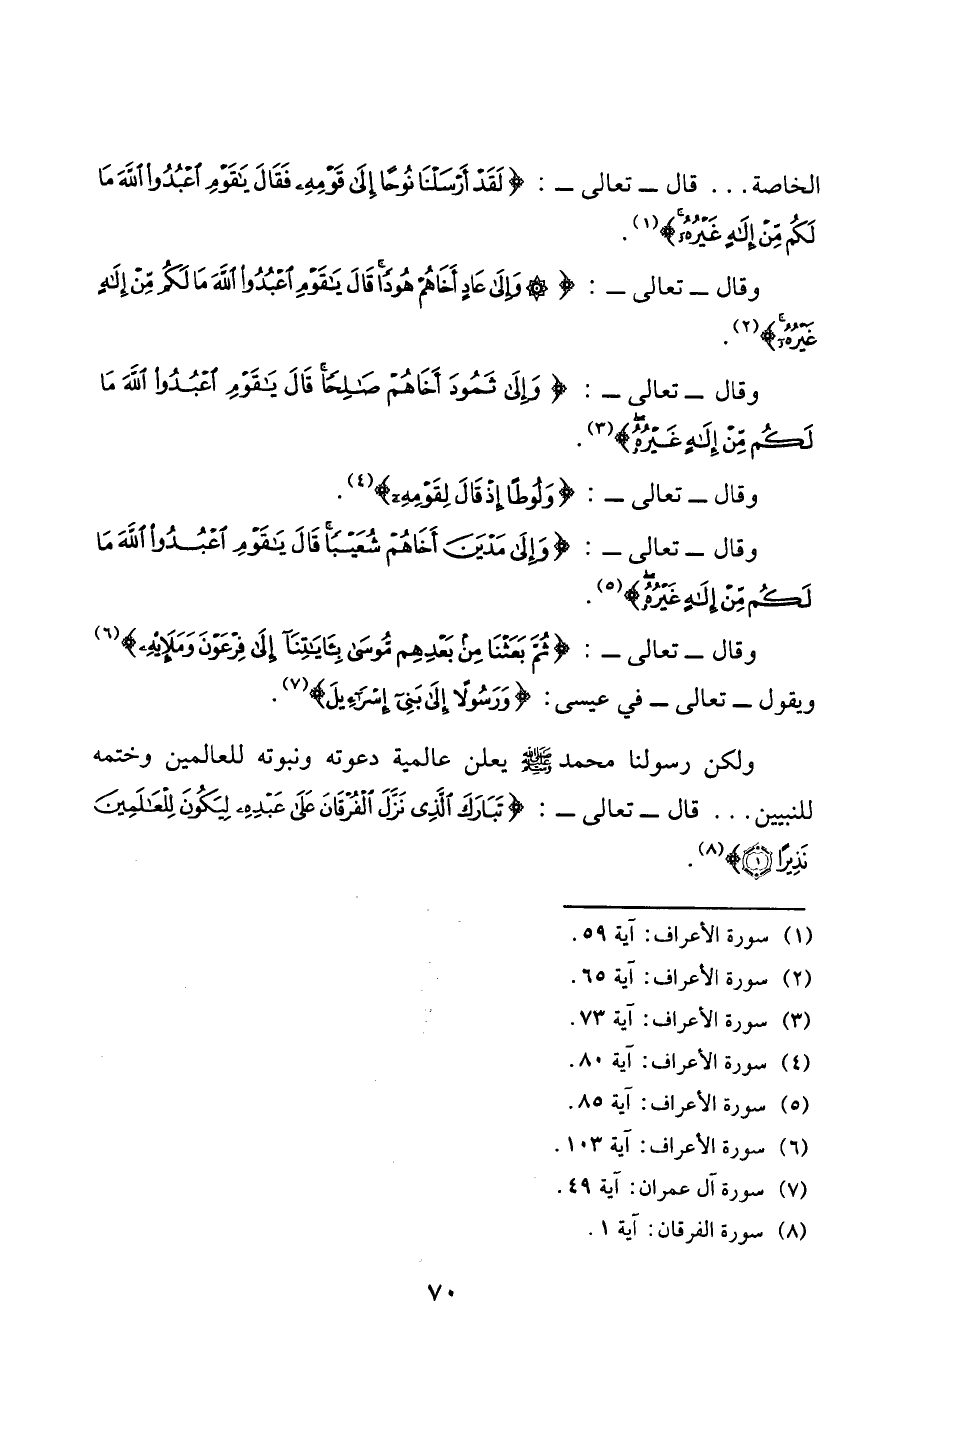 الخاصة... قال ـ تعالى ـ : ﴿ لَقَدْ أَرْسَلْنَا نُوحًا إِلَىٰ قَوْمِهِۦ فَقَالَ يَٰقَوْمِ ٱعْبُدُوا۟ ٱللَّهَ مَا
لَكُم مِّنْ إِلَٰهٍ غَيْرُهُۥٓ ﴾(١).
وقال ـ تعالى ـ : ﴿ ۞ وَإِلَىٰ عَادٍ أَخَاهُمْ هُودًا ۗ قَالَ يَٰقَوْمِ ٱعْبُدُوا۟ ٱللَّهَ مَا لَكُم مِّنْ إِلَٰهٍ
غَيْرُهُۥٓ ۚ ﴾(٢).
وقال ـ تعالى ـ : ﴿ وَإِلَىٰ ثَمُودَ أَخَاهُمْ صَٰلِحًا ۗ قَالَ يَٰقَوْمِ ٱعْبُدُوا۟ ٱللَّهَ مَا
لَكُم مِّنْ إِلَٰهٍ غَيْرُهُۥ ۖ ﴾(٣).
وقال ـ تعالى ـ : ﴿ وَلُوطًا إِذْ قَالَ لِقَوْمِهِۦٓ ﴾(٤).
وقال ـ تعالى ـ : ﴿ وَإِلَىٰ مَدْيَنَ أَخَاهُمْ شُعَيْبًا ۗ قَالَ يَٰقَوْمِ ٱعْبُدُوا۟ ٱللَّهَ مَا
لَكُم مِّنْ إِلَٰهٍ غَيْرُهُۥ ۖ ﴾(٥).
وقال ـ تعالى ـ : ﴿ ثُمَّ بَعَثْنَا مِنۢ بَعْدِهِم مُّوسَىٰ بِـَٔايَٰتِنَآ إِلَىٰ فِرْعَوْنَ وَمَلَإِي۟هِۦ ﴾(٦)
ويقول ـ تعالى ـ في عيسى: ﴿ وَرَسُولًا إِلَىٰ بَنِىٓ إِسْرَٰٓءِيلَ ﴾(٧).
ولكن رسولنا محمد ﷺ يعلن عالمية دعوته ونبوته للعالمين وختمه
للنبيين... قال ـ تعالى ـ : ﴿ تَبَارَكَ ٱلَّذِى نَزَّلَ ٱلْفُرْقَانَ عَلَىٰ عَبْدِهِۦ لِيَكُونَ لِلْعَٰلَمِينَ
نَذِيرًا ١ ﴾(٨).
(١) سورة الأعراف: آية ٥٩.
(٢) سورة الأعراف: آية ٦٥.
(٣) سورة الأعراف: آية ٧٣.
(٤) سورة الأعراف: آية ٨٠.
(٥) سورة الأعراف: آية ٨٥.
(٦) سورة الأعراف: آية ١٠٣.
(٧) سورة آل عمران: آية ٤٩.
(٨) سورة الفرقان: آية ١.
٧٠